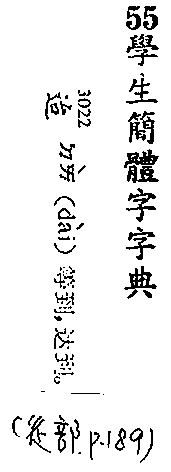 55學生簡體字字典
3022
迨 ㄉㄞˋ (dài) 等到，达到。
(辵部 p.189)